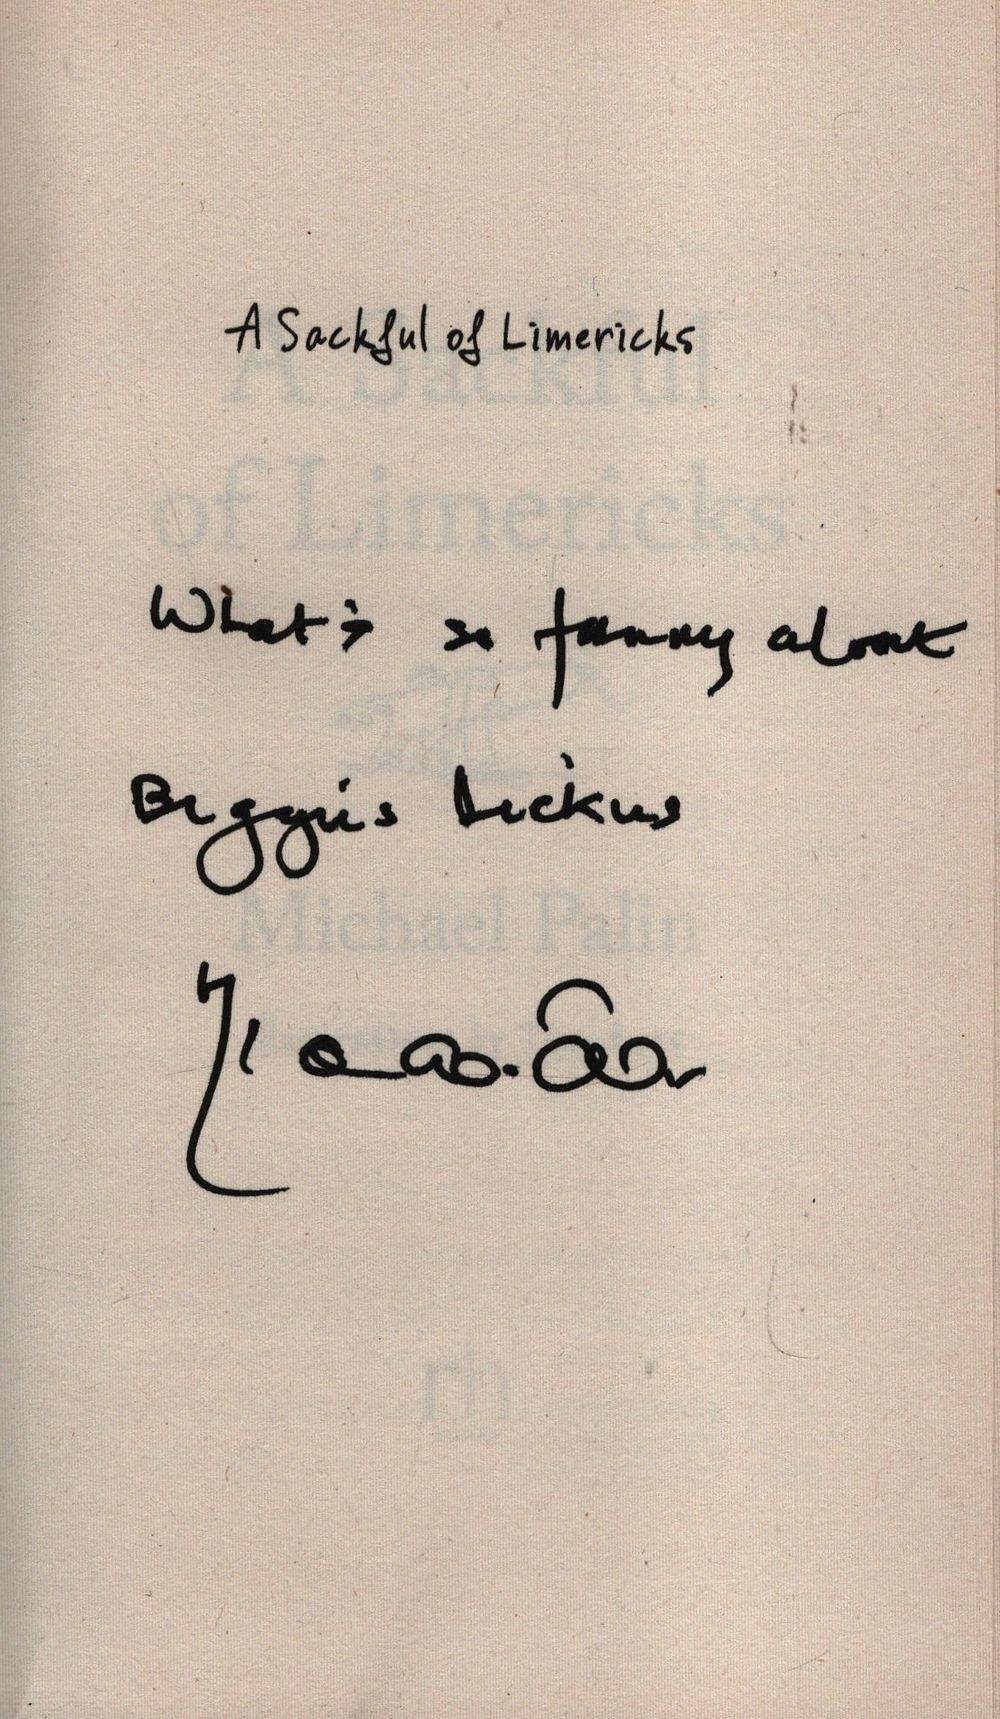 A Sackful of Limericks
A Sackful
of Limericks
What's so funny about
Biggus Dickus
Michael Palin
rh